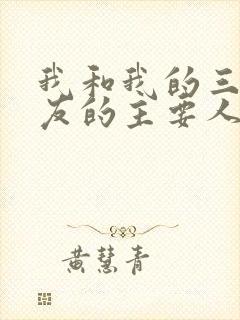 我和我的三
友的主要人
黄慧青